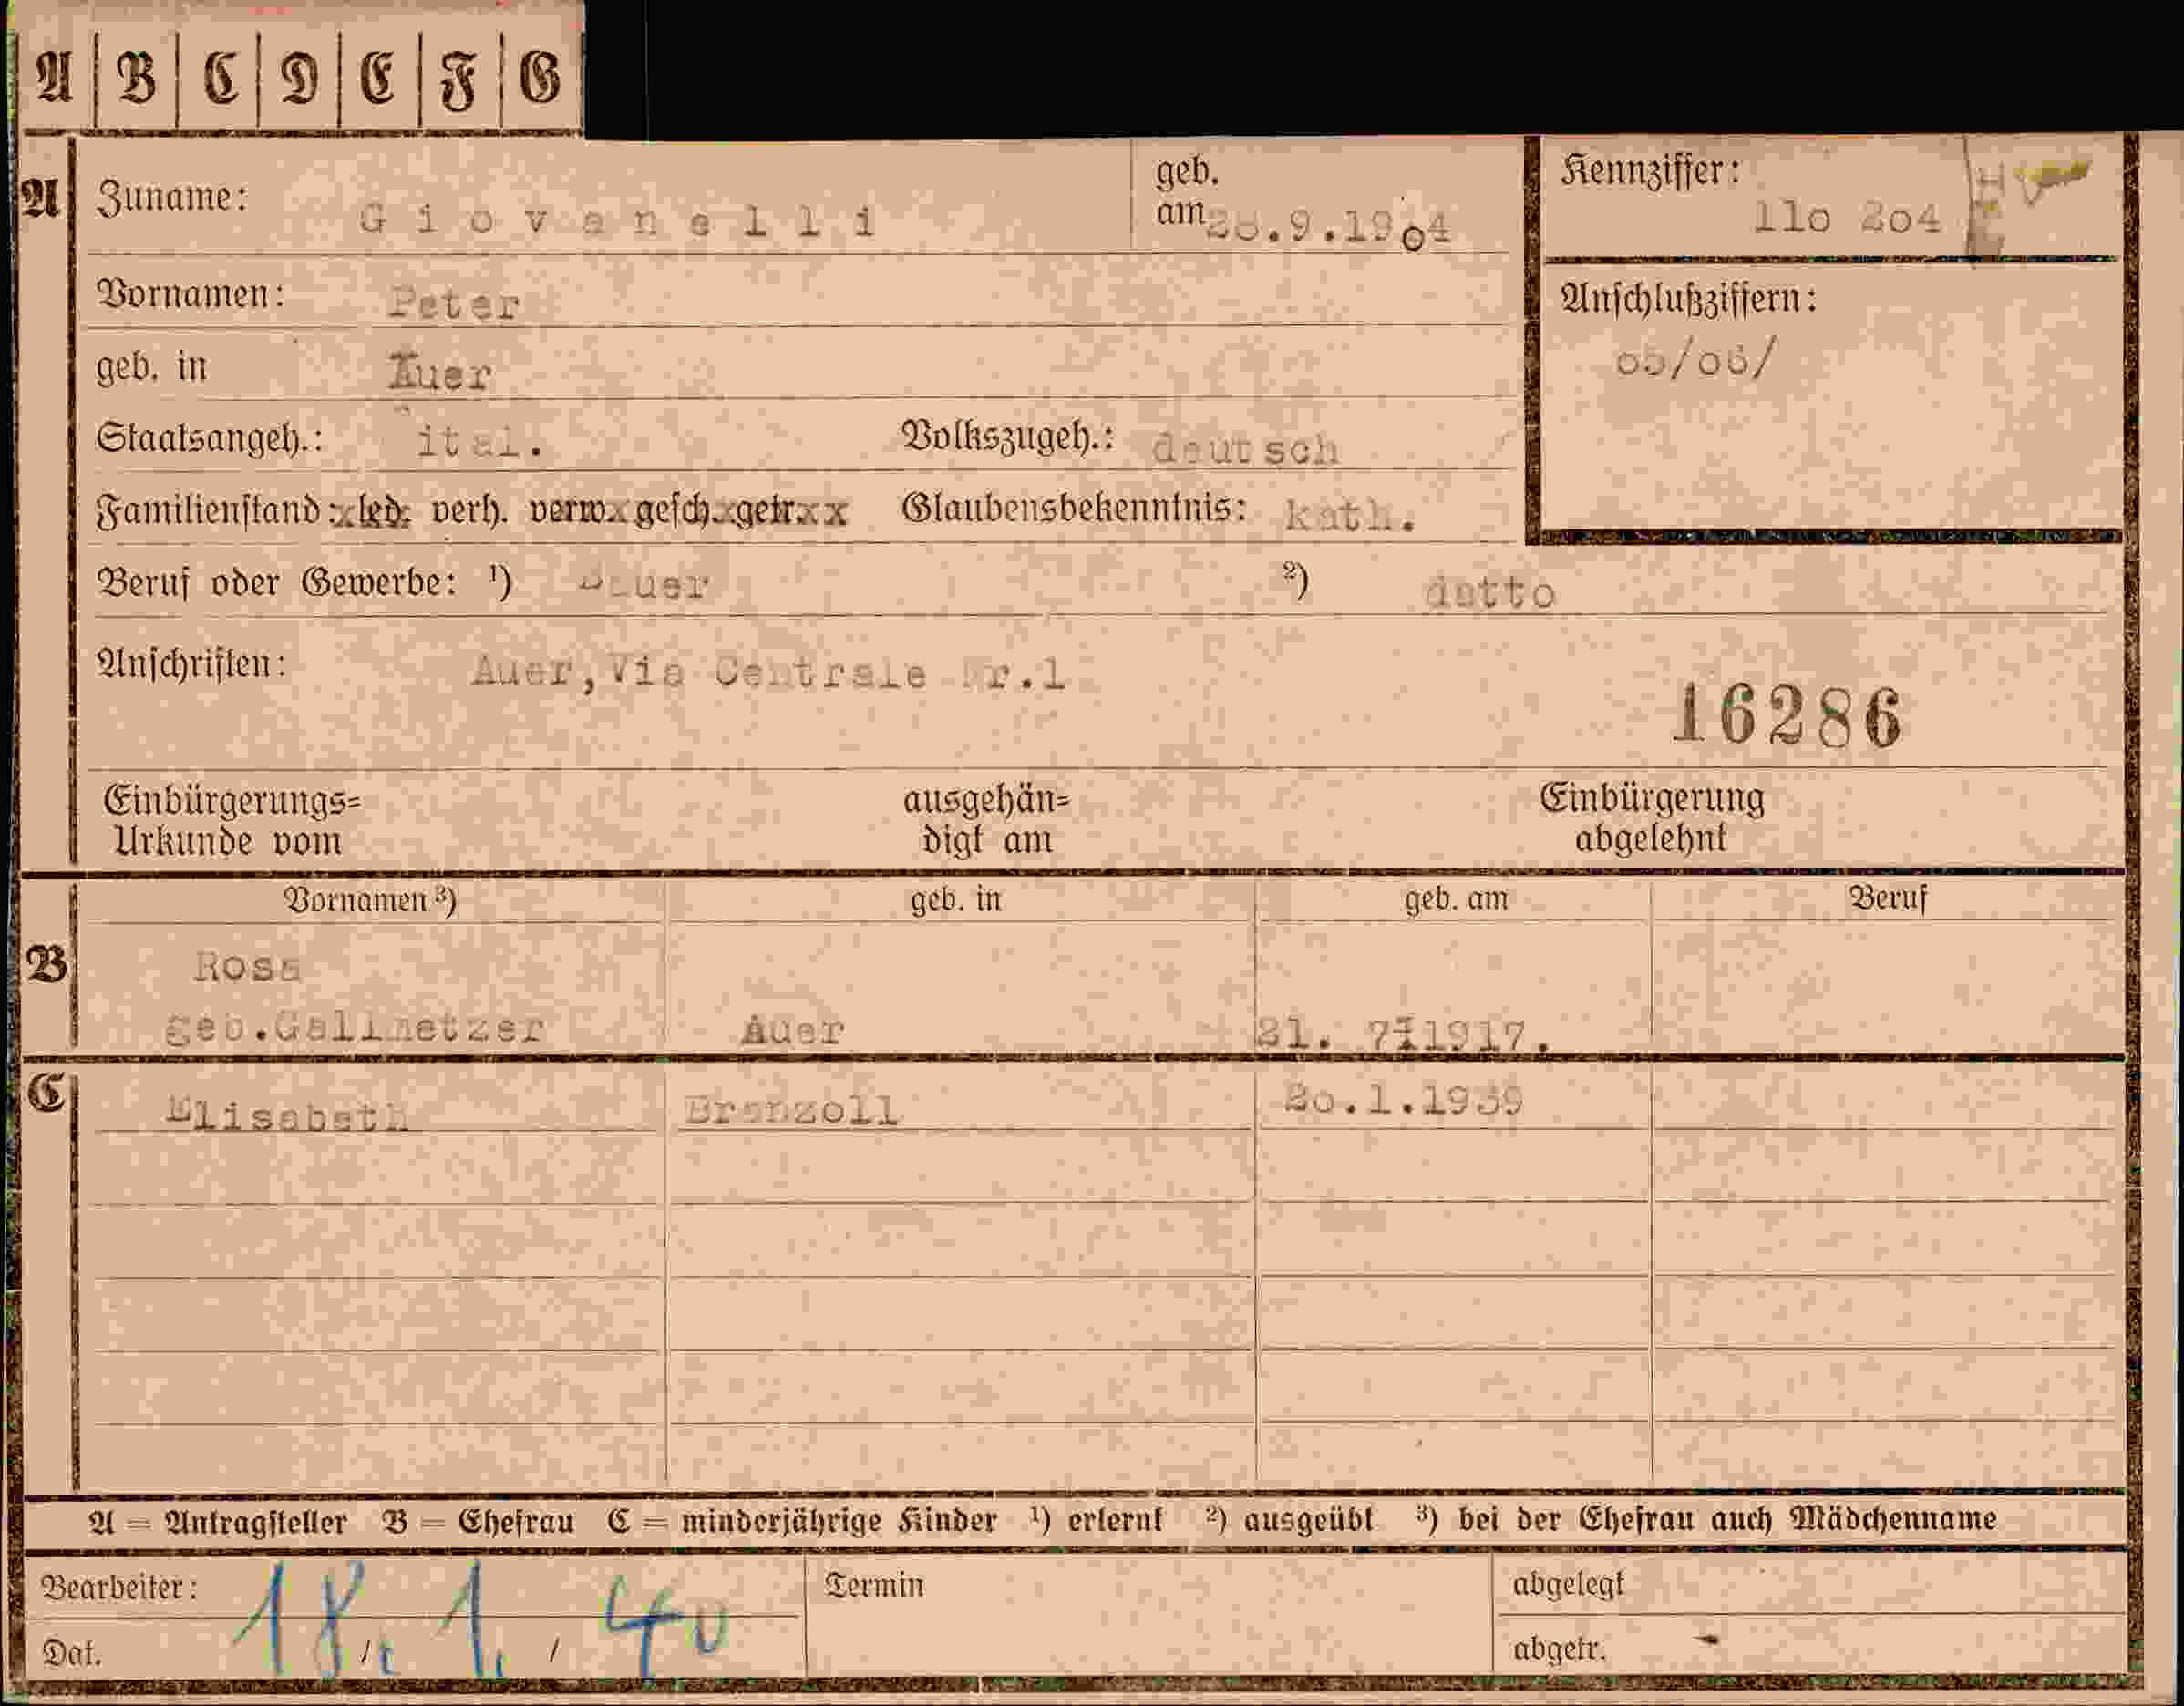 A B C D E F G
A Zuname: Giovanelli geb. am 28.9.1904 Kennziffer: 11o 2o4
Vornamen: Peter Anschlußziffern:
geb. in Auer o5/o6/
Staatsangeh.: ital. Volkszugeh.: deutsch
Familienstand: led. verh. verw. gesch. getr. Glaubensbekenntnis: kath.
Beruf oder Gewerbe: ¹) Bauer ²) detto
Anschriften: Auer, Via Centrale Nr.1
16286
Einbürgerungs= ausgehän= Einbürgerung
Urkunde vom digt am abgelehnt
Vornamen ³) geb. in geb. am Beruf
B Rosa
geb.Gallmetzer Auer 21. 7 1917.
C Elisabeth Branzoll 2o.1.1939
A = Antragsteller B = Ehefrau C = minderjährige Kinder ¹) erlernt ²) ausgeübt ³) bei der Ehefrau auch Mädchenname
Bearbeiter: Termin abgelegt
Dat. 18. / 1. / 40 abgetr.